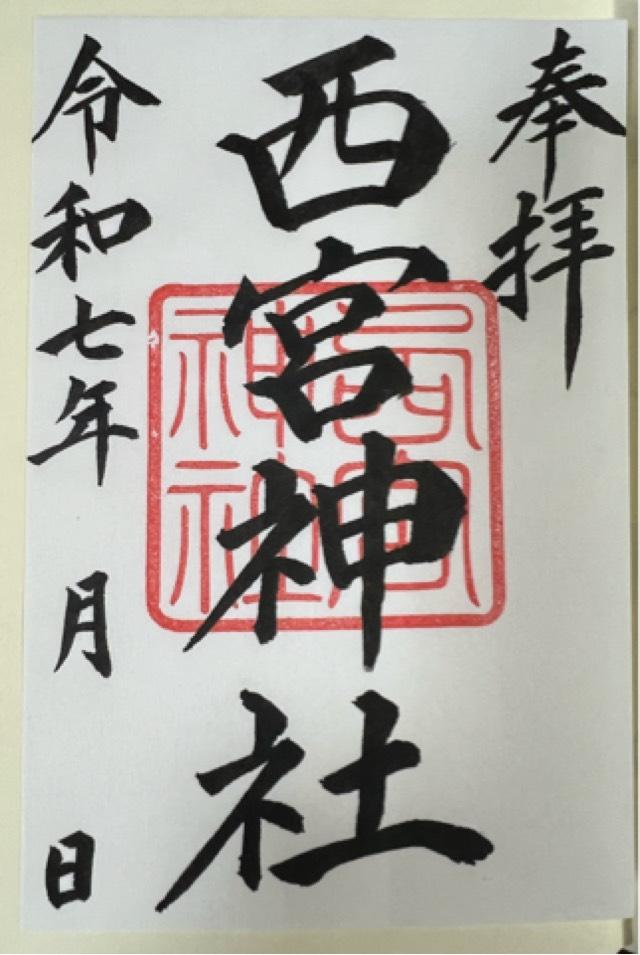 奉拝
西宮神社
令和七年 月 日
西宮
神社